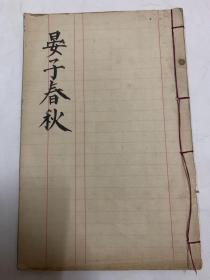 晏子春秋